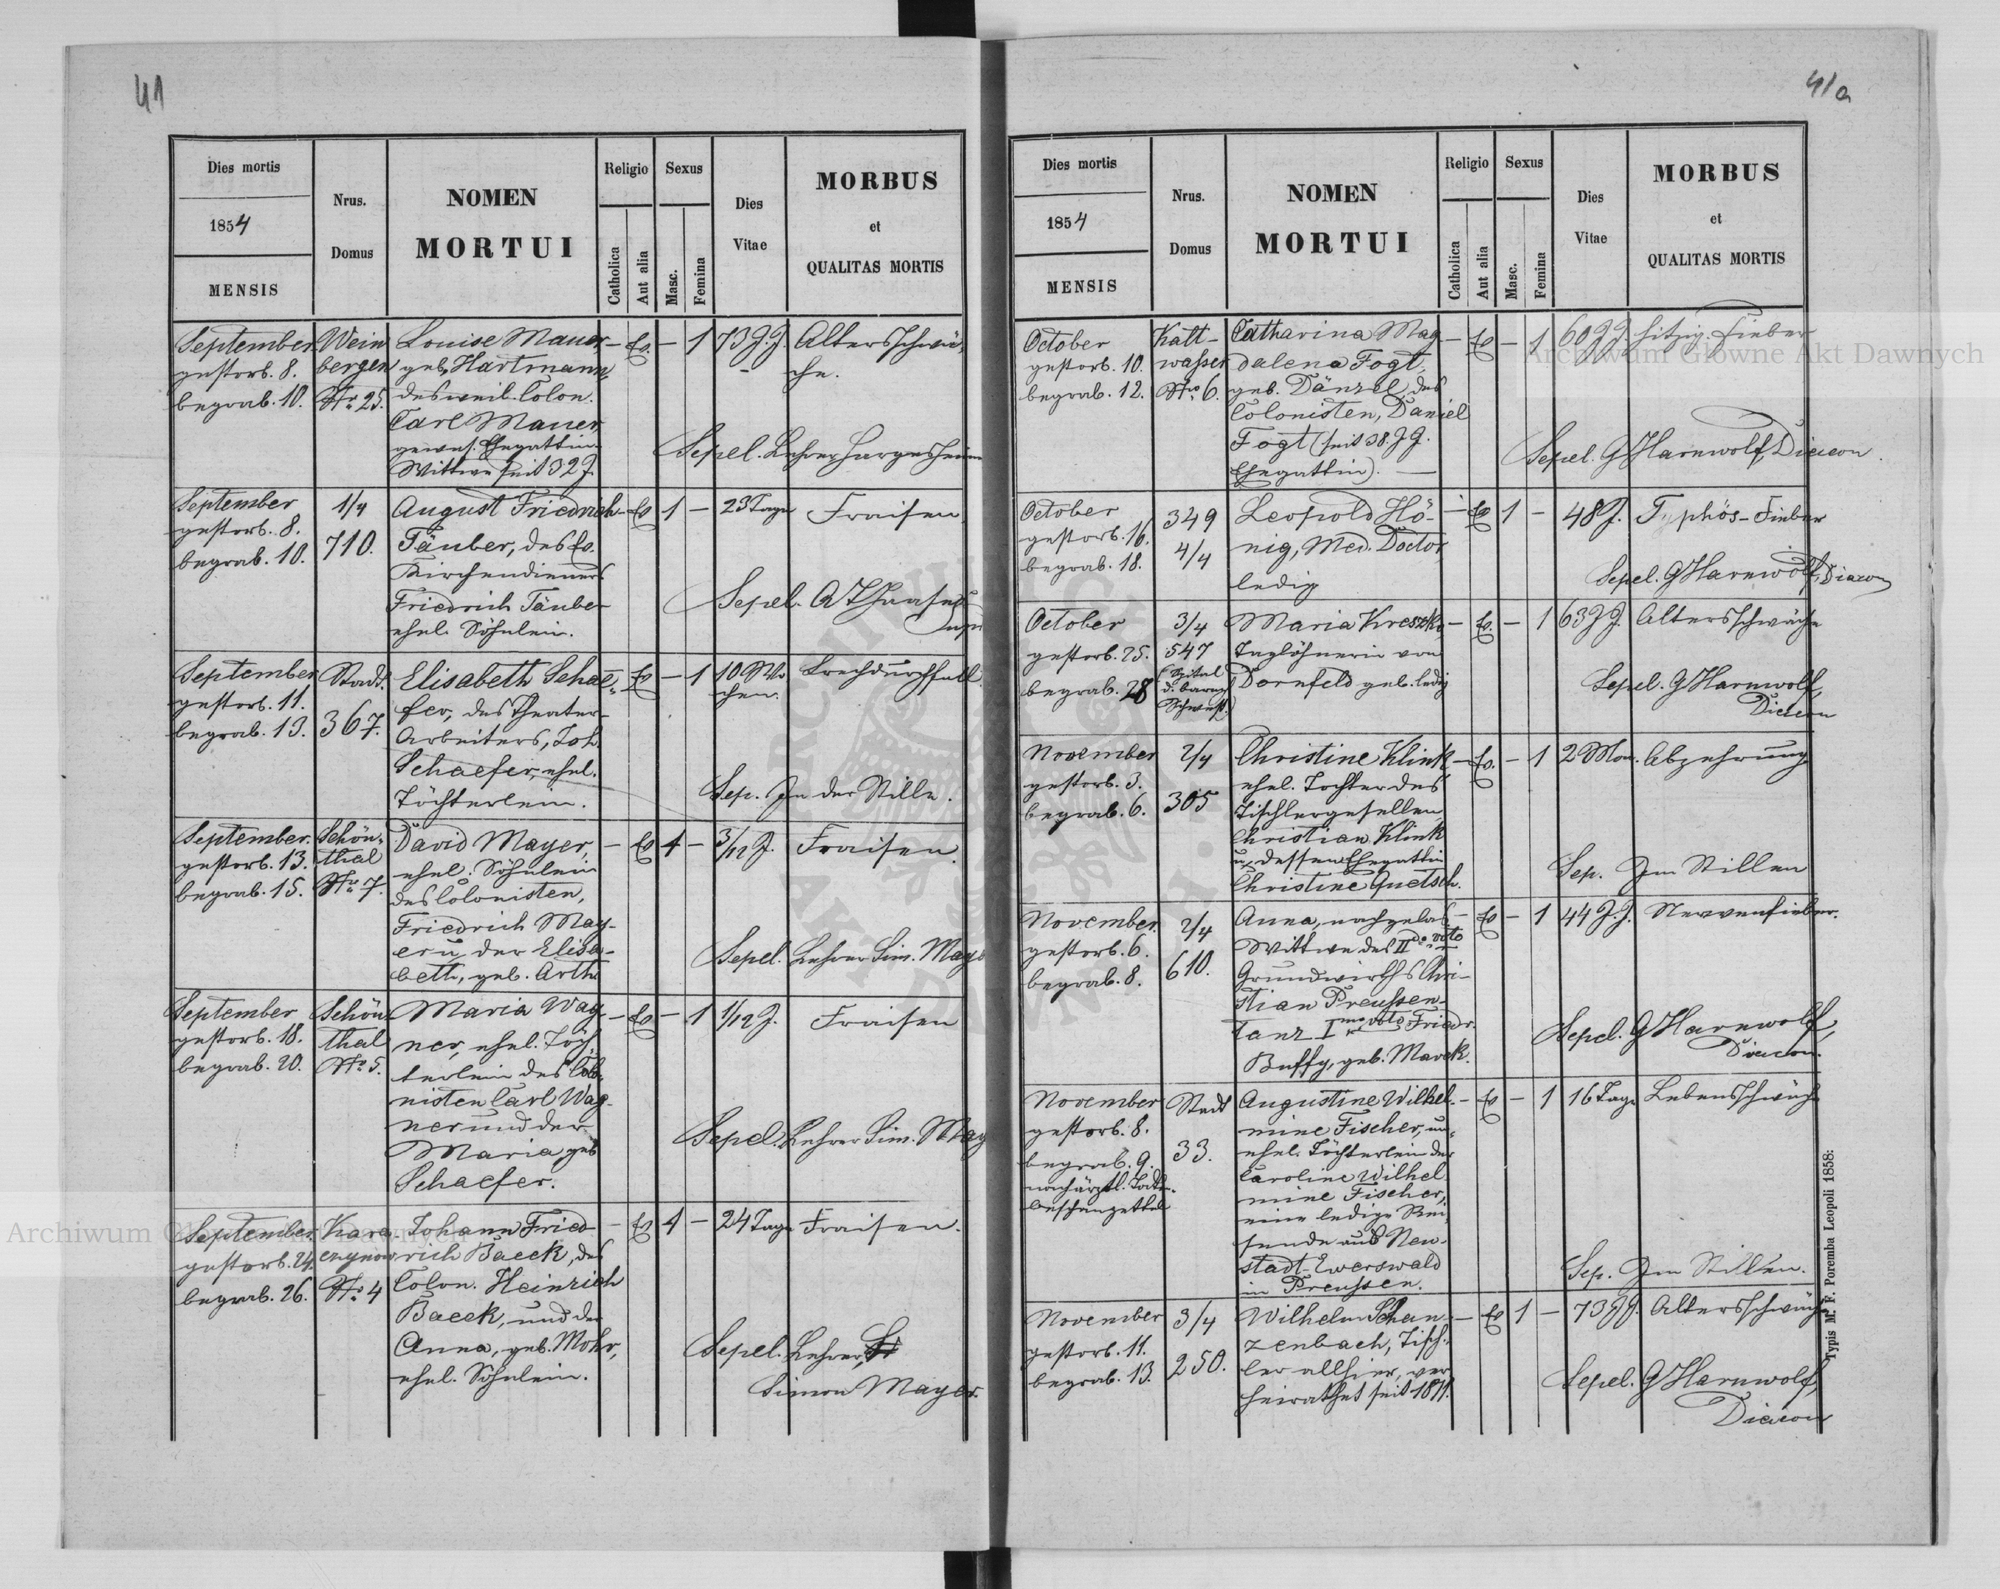 41
Dies mortis
1854
MENSIS
Nrus.
Domus
NOMEN
MORTUI
Religio
Catholica
Aut alia
Sexus
Masc.
Femina
Dies
Vitae
MORBUS
et
QUALITAS MORTIS
September
gestorb. 8.
begrab. 10.
Wein
bergen
Nr. 25.
Louise Mauer,
geb. Hartmann,
des weil. Colon.
Carl Mauer,
gewes. Ehegattin
Wittwe seit 32 J.
– Ev. – 1 73 J. J. Altersschwä-
che.
Sepel. Lehrer Hargesheim
September
gestorb. 8.
begrab. 10.
1/4
710.
August Friedrich
Täuber, des Ev.
Kirchendieners
Friedrich Täuber
ehel. Söhnlein.
– Ev 1 – 23 Tage Fraisen
Sepel.
September
gestorb. 11.
begrab. 13.
Stadt.
367.
Elisabeth Schae-
fer, des Theater-
Arbeiters, Joh.
Schaefer, ehel.
Töchterlein.
– Ev – 1 10 Wo
chen. Brechdurchfall.
Sep. In der Stille.
September.
gestorb. 13.
begrab. 15.
Schön-
thal
Nr. 7.
David Mayer,
ehel. Söhnlein
des Colonisten,
Friedrich May-
er u. der Elisa-
beth, geb. Arth
– Ev 1 – 3/12 J. Fraisen.
Sepel. Lehrer Sim. Maye
September
gestorb. 18.
begrab. 20.
Schön
thal
Nr. 5.
Maria Wag-
ner, ehel. Töch-
terlein des Colo-
nisten Carl Wag-
ner und der
Maria geb
Schaefer.
– Ev – 1 1/12 J. Fraisen
Sepel. Lehrer Sim. May
September.
gestorb. 24.
begrab. 26.
Kara-
czynow
Nr. 4
Johann Fried-
rich Baeck, des
Colon. Heinrich
Baeck, und der
Anna, geb. Mohr,
ehel. Söhnlein.
– Ev 1 – 24 Tage Fraisen.
Sepel. Lehrer,
Simon Mayer.
41a
Dies mortis
1854
MENSIS
Nrus.
Domus
NOMEN
MORTUI
Religio
Catholica
Aut alia
Sexus
Masc.
Femina
Dies
Vitae
MORBUS
et
QUALITAS MORTIS
October
gestorb. 10.
begrab. 12.
Kalt-
wasser
Nro 6.
Catharina Mag-
dalena Fogt,
geb. Dänzel, des
Colonisten, Daniel
Fogt (seit 38. J J.
Ehegattin). —
– Ev – 1 60 J J. hitzig. Fieber
Sepel. G Harnwolf, Diacon.
October
gestorb. 16.
begrab. 18.
349
4/4
Leopold Hö-
nig, Med. Doctor,
ledig
– Ev 1 – 48 J. Typhös-Fieber
Sepel. G Harnwolf, Diacon
October
gestorb. 25.
begrab. 28
3/4
547
(Spital
d. barmh
Schwest.)
Maria Kreszko
Taglöhnerin von
Dornfeld geb. ledig
– Ev. – 1 63 J J. Altersschwäche
Sepel. G Harnwolf,
Diacon
November
gestorb. 3.
begrab. 6.
2/4
305
Christine Klink
ehel. Tochter des
Tischlergesellen
Christian Klink
u. dessen Ehegattin
Christine Quetsch.
– Ev. – 1 2 Mon. Abzehrung
Sep. Im Stillen
November.
gestorb. 6.
begrab. 8.
2/4
610.
Anna, nachgelas-
Wittwe des IIdo voto
Grundwirths Chri-
stian Preussen-
tanz Imo voto Friedr.
Buffy, geb. Marck.
– Ev – 1 44 J. J. Nervenfieber.
Sepel. G Harnwolf,
Diacon.
November
gestorb. 8.
begrab. 9.
nach ärztl. Todten-
beschauzettel
Stadt
33.
Augustine Wilhel-
mine Fischer, un-
ehel. Töchterlein der
Caroline Wilhel-
mine Fischer,
eine ledige Rei-
sende aus Neu-
stadt-Ewerswald
in Preussen.
– Ev – 1 16 Tage Lebensschwäche
Sep. Im Stillen.
November
gestorb. 11.
begrab. 13.
3/4
250.
Wilhelm Schan-
zenbach, Tisch-
ler allhier, ver-
heirathet seit 1811.
– Ev 1 – 73 J J. Altersschwäche
Sepel. G Harnwolf,
Diacon
Typis M. F. Poremba Leopoli 1858:
Archiwum Główne Akt Dawnych